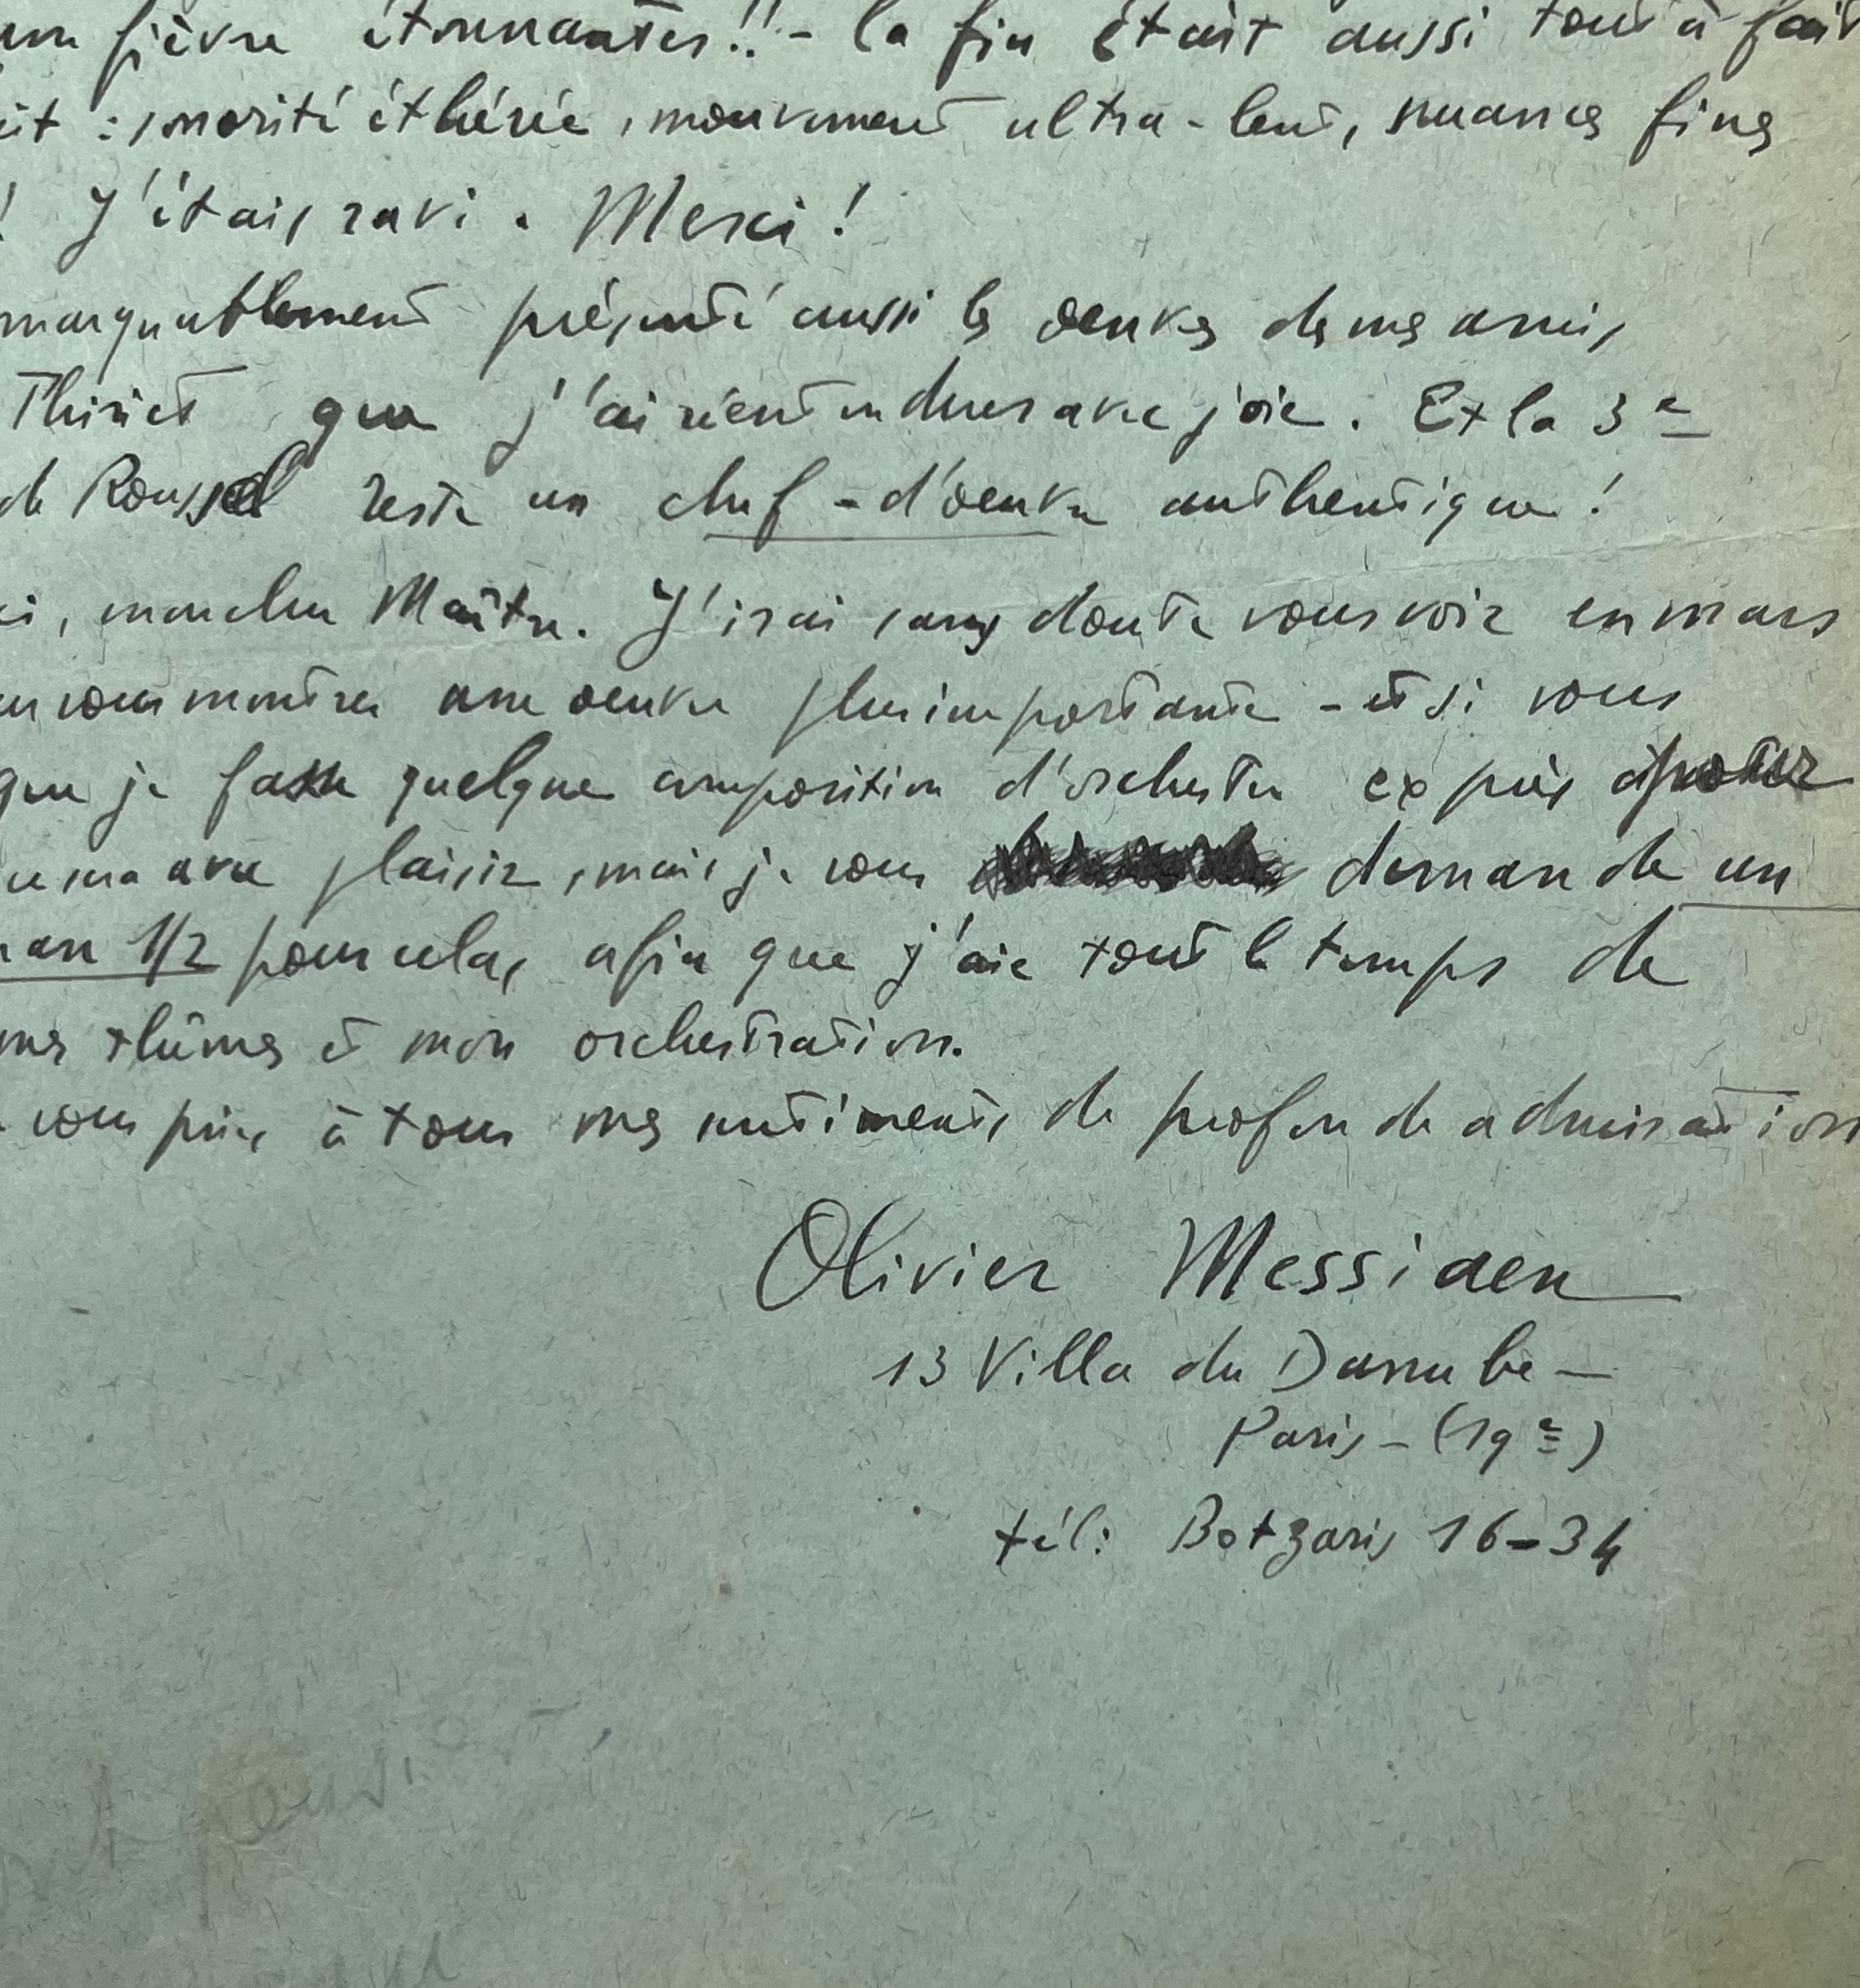 fièvre étonnantes!! - la fin était aussi tout à fait
: sonorité éthérée, mouvement ultra-lent, nuances fines
! J'étais ravi. Merci!
marquablement présenté aussi les œuvres de mes amis
Thiriet que j'ai réentendues avec joie. Et la 3e
de Roussel reste un chef-d'œuvre authentique!
i, mon cher Maître. J'irai sans doute vous voir en mars
vous montrer une œuvre plus importante - et si vous
que je fasse quelque composition d'orchestre exprès
sera avec plaisir, mais je vous demande un
an 1/2 pour cela, afin que j'aie tout le temps de
mes thèmes et mon orchestration.
vous prie, à tous mes sentiments de profonde admiration
Olivier Messiaen
13 Villa du Danube —
Paris - (19e)
tél: Botzaris 16-34